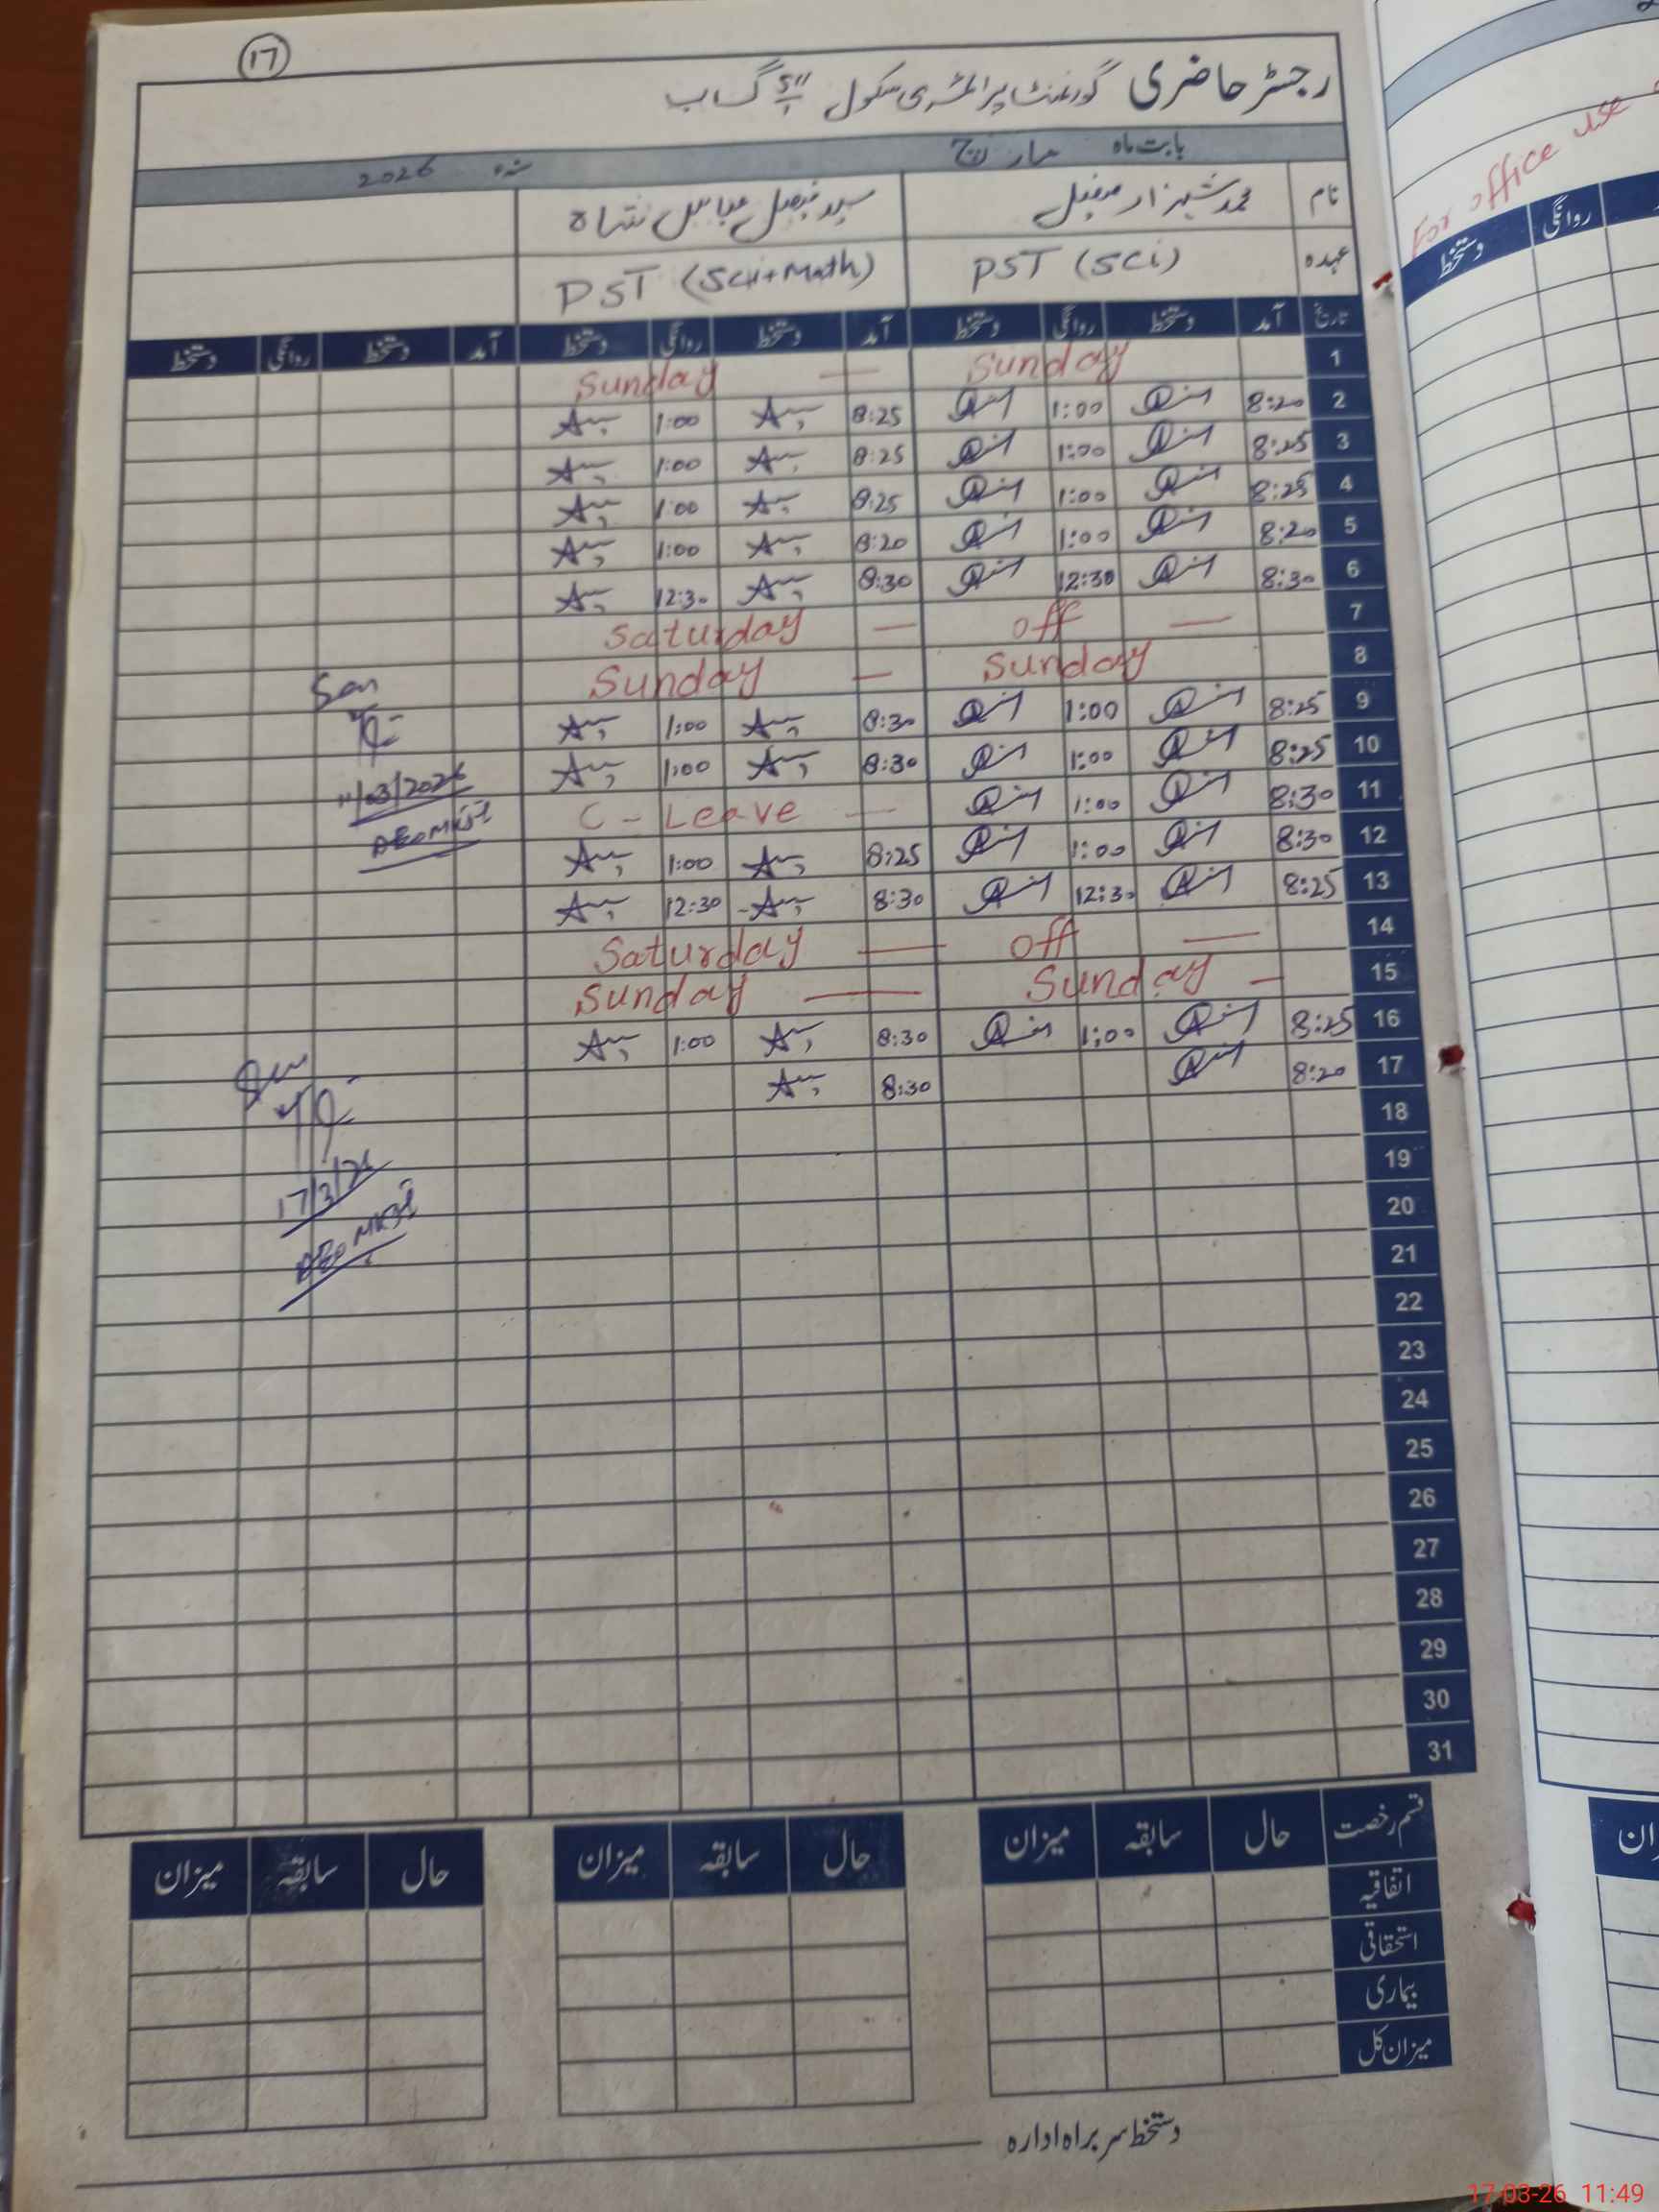 ۱۷
رجسٹر حاضری گورنمنٹ پرائمری سکول گساب
بابت ماہ مارچ سنہ 2026
نام محمد شیراز فیصل سید فیصل عباس شاہ
عہدہ PST (Sci) PST (Sci+Math)
تاریخ آمد دستخط روانگی دستخط آمد دستخط روانگی دستخط آمد دستخط روانگی دستخط
1 Sunday — Sunday
2 8:20 1:00 8:25 1:00
3 8:25 1:00 8:25 1:00
4 8:25 1:00 8:25 1:00
5 8:20 1:00 8:20 1:00
6 8:30 12:30 8:30 12:30
7 Saturday — off —
8 Sunday — Sunday
9 8:25 1:00 8:30 1:00
10 8:25 1:00 8:30 1:00
11 8:30 1:00 C - Leave —
12 8:30 1:00 8:25 1:00
13 8:25 12:30 8:30 12:30
14 Saturday — off —
15 Sunday — Sunday -
16 8:25 1:00 8:30 1:00
17 8:20 8:30
18
19
20
21
22
23
24
25
26
27
28
29
30
31
Seen
11/03/2026
Seen
17/3/26
قسم رخصت حال سابقہ میزان حال سابقہ میزان حال سابقہ میزان
اتفاقیہ
استحقاقی
بیماری
میزان کل
دستخط سربراہ ادارہ
For office use
روانگی دستخط
17-03-26 11:49